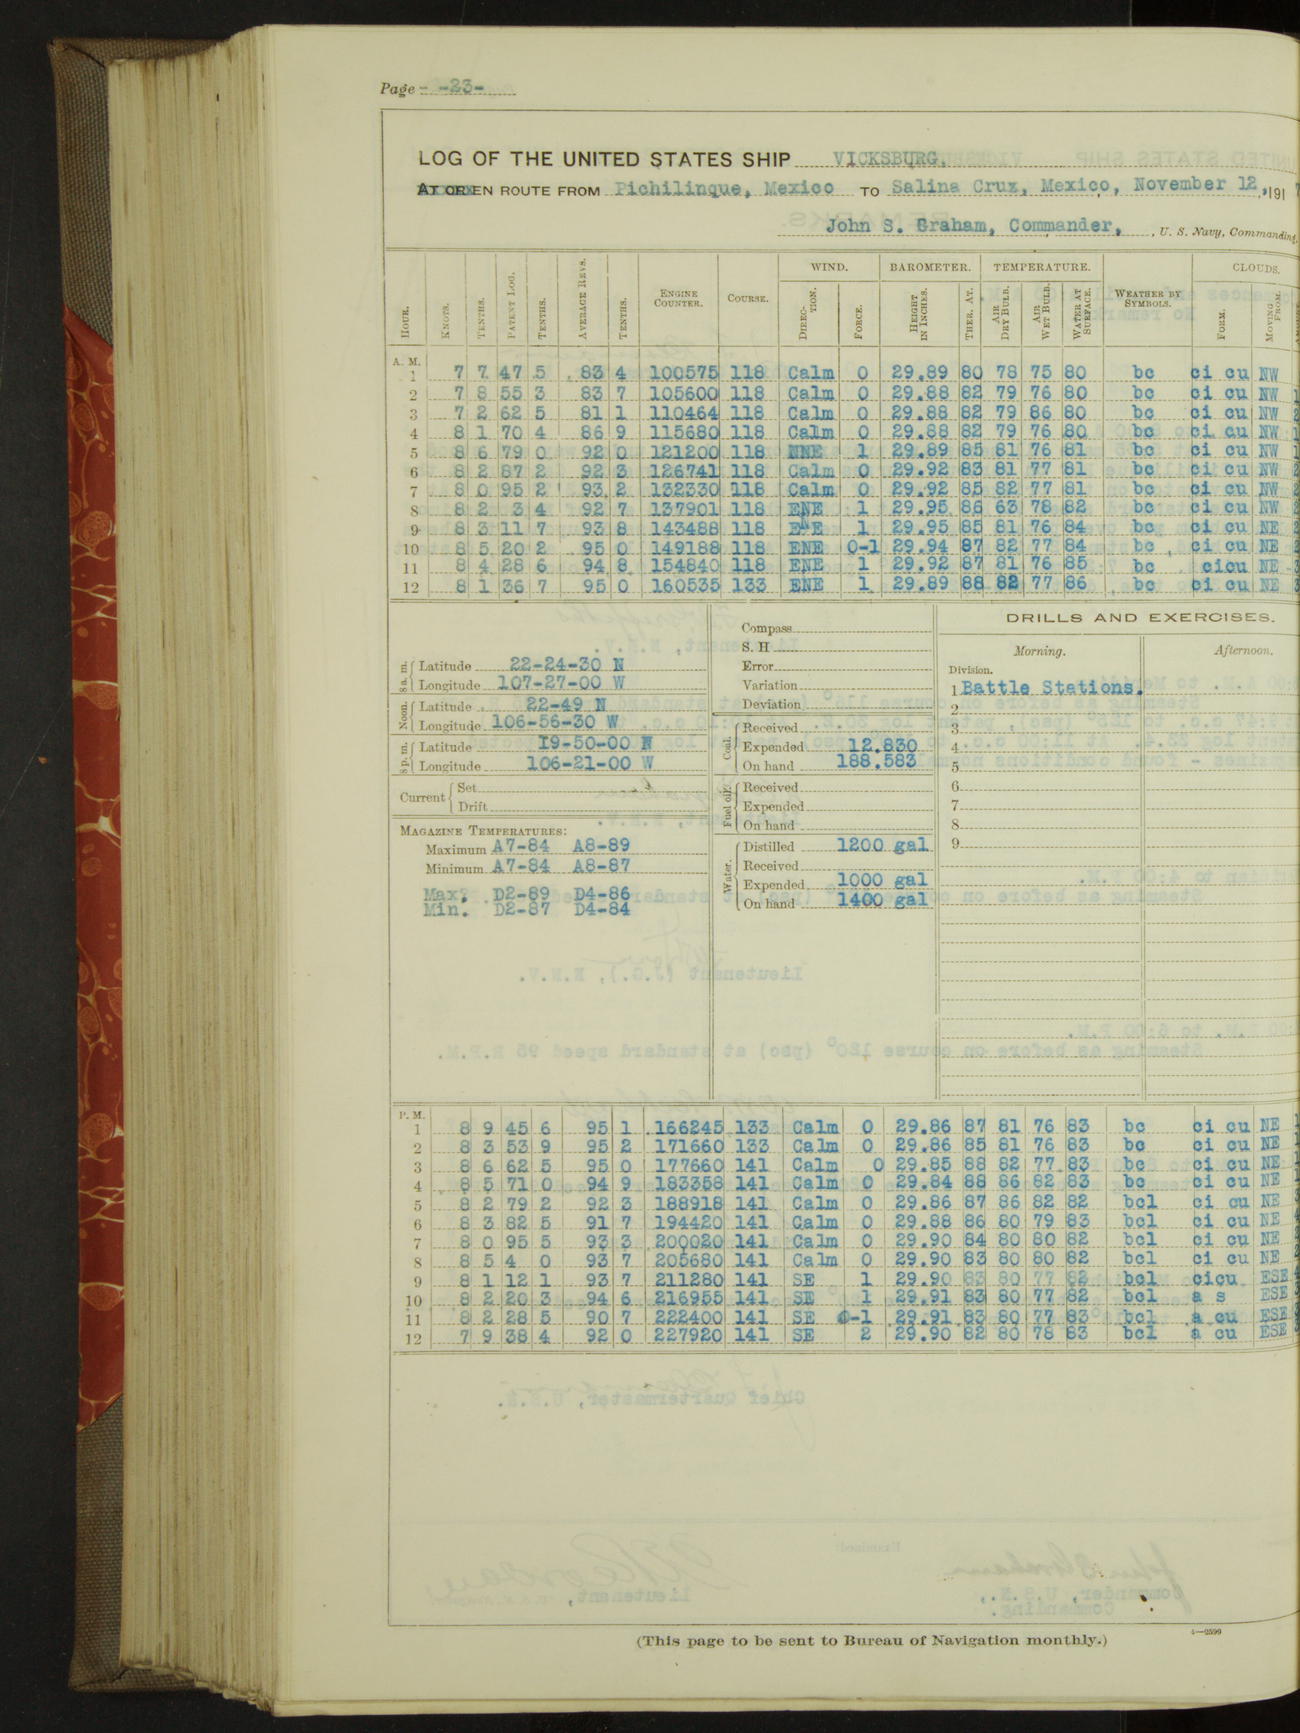 Page - -23-
LOG OF THE UNITED STATES SHIP VICKSBURG.
AT OR EN ROUTE FROM Pichilinque, Mexico TO Salina Cruz, Mexico, November 12, 191
John S. Graham, Commander, , U. S. Navy, Commanding.
WIND. BAROMETER. TEMPERATURE. CLOUDS.
HOUR. KNOTS. TENTHS. PATENT LOG. TENTHS. AVERAGE REVS. TENTHS. ENGINE COUNTER. COURSE. DIRECTION. FORCE. HEIGHT IN INCHES. THER. AT. AIR DRY BULB. AIR WET BULB. WATER AT SURFACE. WEATHER BY SYMBOLS. FORM. MOVING FROM.
A. M.
1 7 7 47 5 83 4 100575 118 Calm 0 29.89 80 78 75 80 bc ci cu NW
2 7 8 55 3 83 7 105600 118 Calm 0 29.88 82 79 76 80 bc ci cu NW
3 7 2 62 5 81 1 110464 118 Calm 0 29.88 82 79 86 80 bc ci cu NW
4 8 1 70 4 86 9 115680 118 Calm 0 29.88 82 79 76 80 bc ci cu NW
5 8 6 79 0 92 0 121200 118 NNE 1 29.89 85 81 76 81 bc ci cu NW
6 8 2 87 2 92 3 126741 118 Calm 0 29.92 83 81 77 81 bc ci cu NW
7 8 0 95 2 93 2 132330 118 Calm 0 29.92 85 82 77 81 bc ci cu NW
8 8 2 3 4 92 7 137901 118 ENE 1 29.95 86 63 78 82 bc ci cu NW
9 8 3 11 7 93 8 143488 118 ENE 1 29.95 85 81 76 84 bc ci cu NE
10 8 5 20 2 95 0 149188 118 ENE 0-1 29.94 87 82 77 84 bc ci cu NE
11 8 4 28 6 94 8 154840 118 ENE 1 29.92 87 81 76 85 bc cicu NE
12 8 1 36 7 95 0 160535 133 ENE 1 29.89 88 82 77 86 bc ci cu NE
8 a. m. Latitude 22-24-30 N
Longitude 107-27-00 W
Noon. Latitude 22-49 N
Longitude 106-56-30 W
8 p. m. Latitude 19-50-00 N
Longitude 106-21-00 W
Current Set
Drift
MAGAZINE TEMPERATURES:
Maximum A7-84 A8-89
Minimum A7-84 A8-87
Max. D2-89 D4-86
Min. D2-87 D4-84
Compass
S. H
Error
Variation
Deviation
Coal. Received
Expended 12.830
On hand 188.583
Fuel oil. Received
Expended
On hand
Water. Distilled 1200 gal
Received
Expended 1000 gal
On hand 1400 gal
DRILLS AND EXERCISES.
Morning. Afternoon.
Division.
1 Battle Stations.
2
3
4
5
6
7
8
9
P. M.
1 8 9 45 6 95 1 166245 133 Calm 0 29.86 87 81 76 83 bc ci cu NE
2 8 3 53 9 95 2 171660 133 Calm 0 29.86 85 81 76 83 bc ci cu NE
3 8 6 62 5 95 0 177660 141 Calm 0 29.85 88 82 77 83 bc ci cu NE
4 8 5 71 0 94 9 183358 141 Calm 0 29.84 88 86 82 83 bc ci cu NE
5 8 2 79 2 92 3 188918 141 Calm 0 29.86 87 86 82 82 bcl ci cu NE
6 8 3 82 5 91 7 194420 141 Calm 0 29.88 86 80 79 83 bcl ci cu NE
7 8 0 95 5 93 3 200020 141 Calm 0 29.90 84 80 80 82 bcl ci cu NE
8 8 5 4 0 93 7 205680 141 Calm 0 29.90 83 80 80 82 bcl ci cu NE
9 8 1 12 1 93 7 211280 141 SE 1 29.90 83 80 77 82 bcl cicu ESE
10 8 2 20 3 94 6 216955 141 SE 1 29.91 83 80 77 82 bcl a s ESE
11 8 2 28 5 90 7 222400 141 SE 0-1 29.91 83 80 77 83 bcl a cu ESE
12 7 9 38 4 92 0 227920 141 SE 2 29.90 82 80 78 83 bcl a cu ESE
(This page to be sent to Bureau of Navigation monthly.)
4—2599